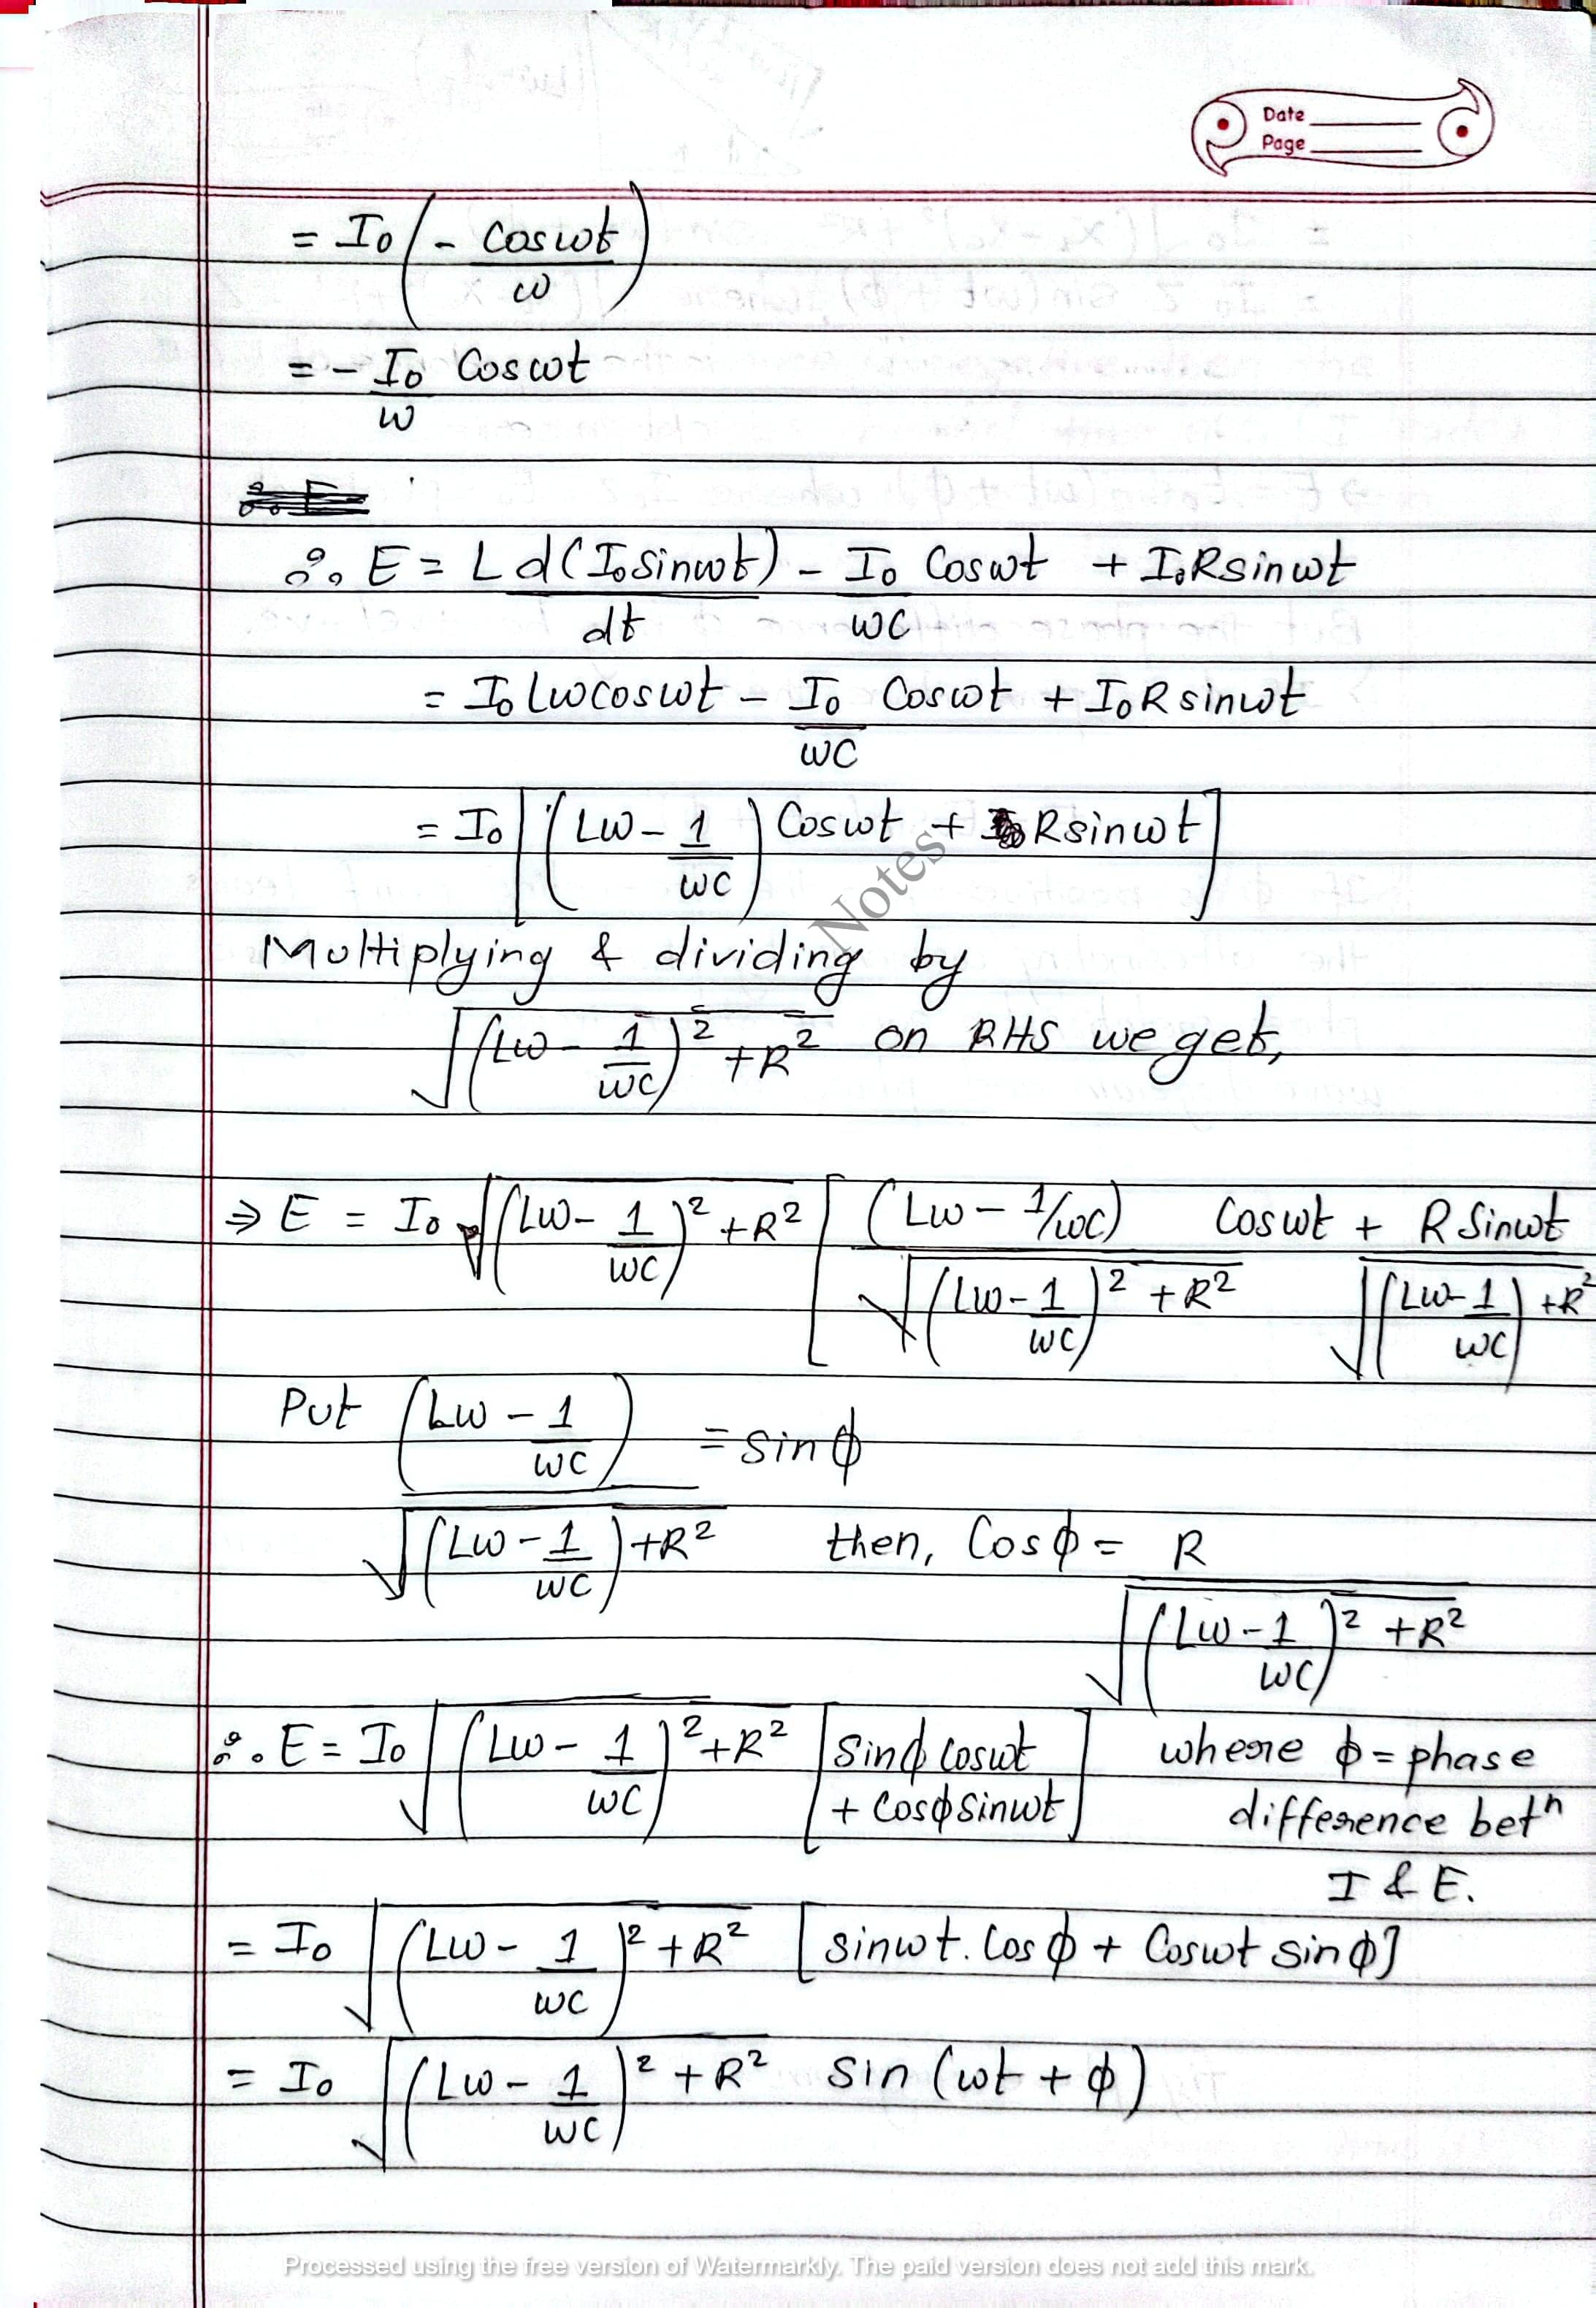 Date
Page
= I₀ (- cosωt / ω)
= - I₀/ω Cosωt
∴ E = L d(I₀sinωt)/dt - I₀/ωC Cosωt + I₀Rsinωt
= I₀Lωcosωt - I₀/ωC Cosωt + I₀Rsinωt
= I₀ [(Lω - 1/ωC) Cosωt + Rsinωt]
Notes
Multiplying & dividing by
√((Lω - 1/ωC)² + R²) on RHS we get,
⇒ E = I₀ √((Lω - 1/ωC)² + R²) [(Lω - 1/ωC) / √((Lω - 1/ωC)² + R²) Cosωt + R Sinωt / √((Lω - 1/ωC) + R²)
Put (Lω - 1/ωC) / √((Lω - 1/ωC) + R²) = sinϕ
then, Cosϕ = R / √((Lω - 1/ωC)² + R²)
∴ E = I₀ √((Lω - 1/ωC)² + R²) [sinϕ cosωt + cosϕ sinωt] where ϕ = phase
difference betⁿ
I & E.
= I₀ √((Lω - 1/ωC)² + R²) [sinωt. Cosϕ + Cosωt sinϕ]
= I₀ √((Lω - 1/ωC)² + R²) sin (ωt + ϕ)
Processed using the free version of Watermarkly. The paid version does not add this mark.